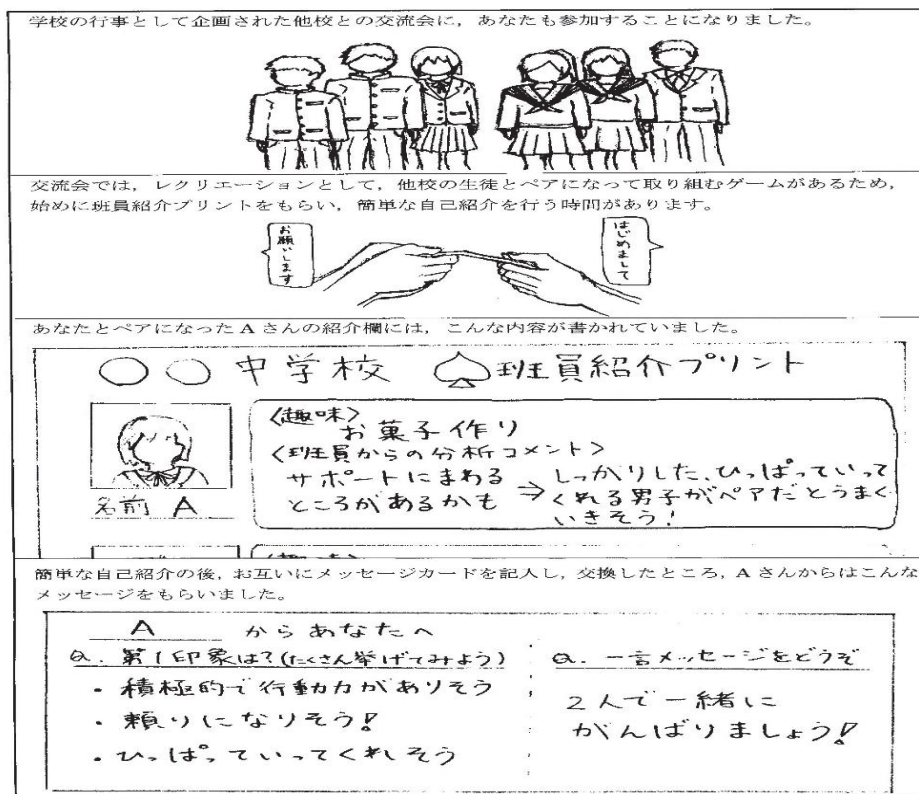 学校の行事として企画された他校との交流会に，あなたも参加することになりました。
交流会では，レクリエーションとして，他校の生徒とペアになって取り組むゲームがあるため，
始めに班員紹介プリントをもらい，簡単な自己紹介を行う時間があります。
はじめまして
お願いします
あなたとペアになった A さんの紹介欄には，こんな内容が書かれていました。
○○中学校 ♤班員紹介プリント
〈趣味〉
お菓子作り
〈班員からの分析コメント〉
サポートにまわる
ところがあるかも
⇒ しっかりした、ひっぱっていって
くれる男子がペアだとうまく
いきそう！
名前 A
簡単な自己紹介の後，お互いにメッセージカードを記入し，交換したところ，A さんからはこんな
メッセージをもらいました。
A からあなたへ
Q. 第1印象は?(たくさん挙げてみよう)
・積極的で行動力がありそう
・頼りになりそう！
・ひっぱっていってくれそう
Q. 一言メッセージをどうぞ
2人で一緒に
がんばりましょう！